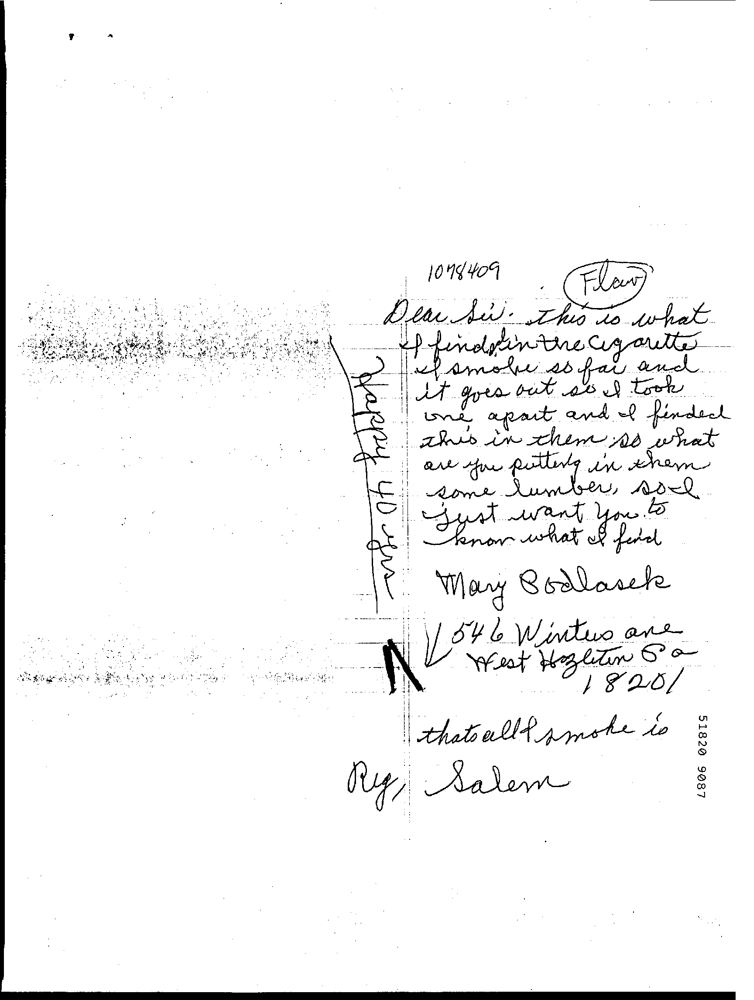 1078409
Flav
Dear Sir. this is what
I find in the Cigarette
I smoke so far and
it goes out so I took
one apart and I finded
this in them so what
are you putting in them
some lumber, so I
just want you to
know what I find
Mary Bodlasek
546 Winters ave
West Hazleton Pa
18201
thats all I smoke is
Reg, Salem
Happy 40 yrs
51820 9087